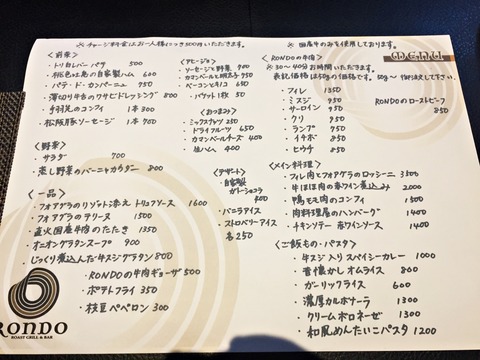 ※チャージ料金はお一人様につき300円いただきます。
<前菜>
・トリ白レバーパテ 500
・桃色吐息の自家製ハム 600
・パテ・ド・カンパーニュ 950
・薄切り牛舌のワサビドレッシング 800
・手羽元のコンフィ 1本 300
・松阪豚ソーセージ 1本 700
<野菜>
・サラダ 700
・蒸し野菜のバーニャカウダー 800
<一品>
・フォアグラのリゾット添え トリュフソース 1600
・フォアグラのテリーヌ 1500
・直火国産牛肉のたたき 1350
・オニオングラタンスープ 900
・じっくり煮込んだ牛スジグラタン 800
・RONDOの牛肉ギョーザ 500
・ポテトフライ 350
・枝豆ペペロン 300
RONDO
ROAST GRILL & BAR
<アヒージョ>
・ソーセージと野菜 900
・カマンベールと明太子 950
・ベーコンとキノコ 650
・バゲット1枚 50
<おつまみ>
・ミックスナッツ 250
・ドライフルーツ 650
・カマンベールチーズ 400
・生ハム 400
<デザート>
・自家製
ガトーショコラ
400
・バニラアイス
・ストロベリーアイス
各250
※国産牛のみを使用しております。
MENU
<RONDOの牛肉>
※30〜40分お時間いただきます。
表記価格は50gの価格です。
・フィレ 1350
・ミスジ 950
・サーロイン 950
・クリ 950
・ランプ 950
・イチボ 850
・ヒウチ 850
RONDOのローストビーフ
850
<メイン料理>
・フィレ肉とフォアグラのロッシーニ 3500
・牛ほほ肉の赤ワイン煮込み 2000
・鴨もも肉のコンフィ 1500
・肉料理屋のハンバーグ 1400
・チキンソテー 赤ワインソース 1400
<ご飯もの・パスタ>
・牛スジ入りスパイシーカレー 1000
・昔懐かしオムライス 800
・ガーリックライス 600
・濃厚カルボナーラ 1300
・クリームボロネーゼ 1300
・和風めんたいこパスタ 1200